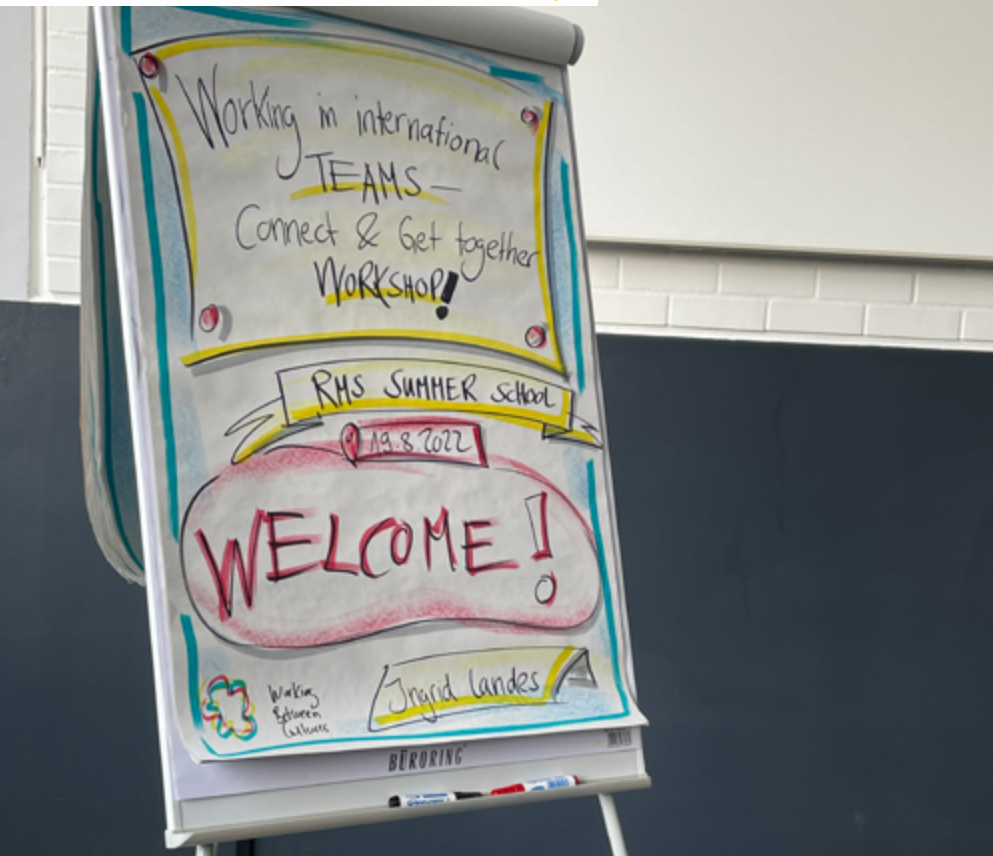 Working in international
TEAMS –
Connect & Get together
WORKSHOP!
RMS SUMMER SCHOOL
19.8.2022
WELCOME!
Ingrid Landes
Working
Between
Cultures
BÜRORING